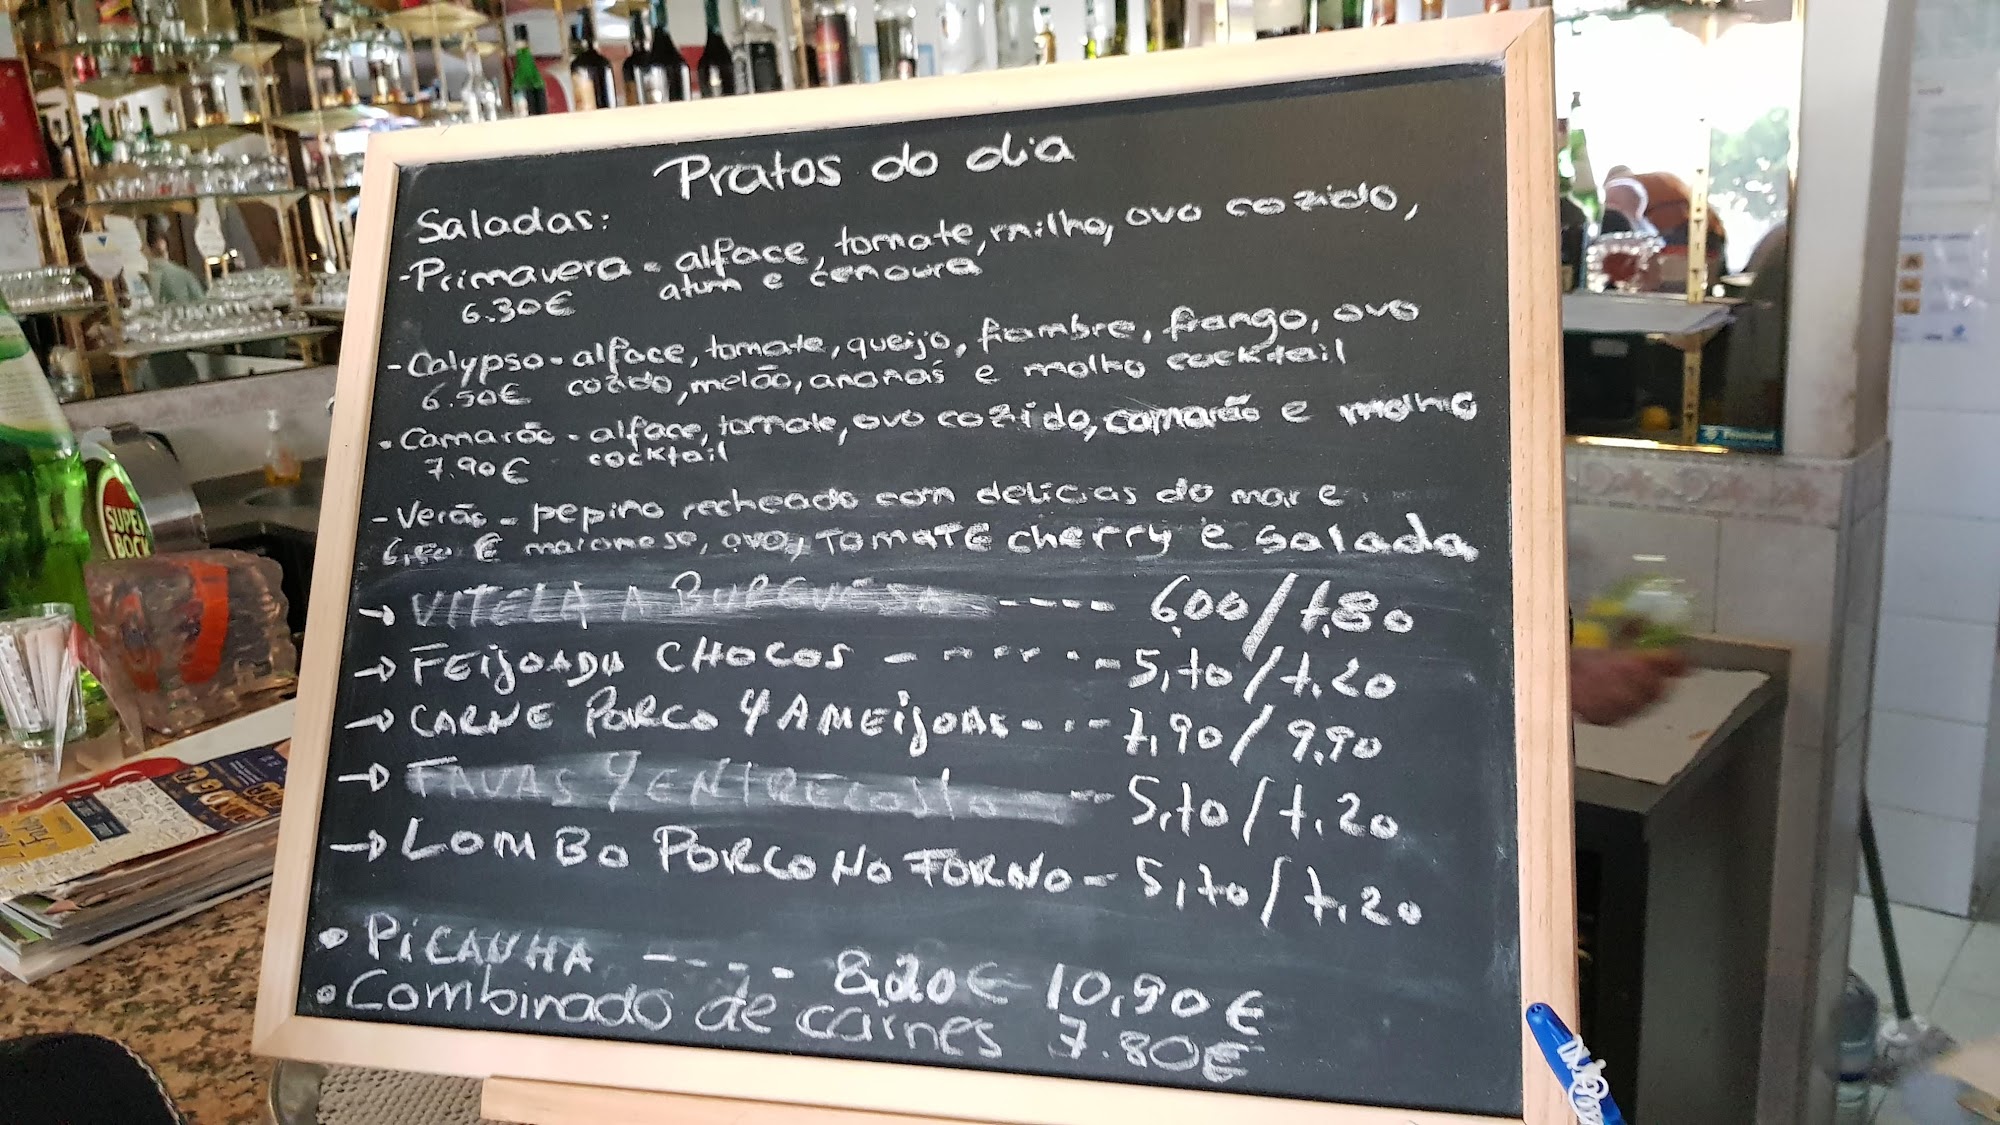 Pratos do dia
Saladas:
-Primavera - alface, tomate, milho, ovo cozido,
6.30€ atum e cenoura
-Calypso - alface, tomate, queijo, fiambre, frango, ovo
6.50€ cozido, melão, ananás e molho cocktail
- Camarão - alface, tomate, ovo cozido, camarão e molho
7.90€ cocktail
- Verão - pepino recheado com delicias do mar e
€ maionese, ovo, TOMATE cherry e salada
→ VITELA A BURGUESA ---- 6,00/7,80
→ FEIJOADA CHOCOS ----- 5,70/7,20
→ CARNE PORCO Y AMEIJOAS --- 7,90/9,90
→ FAVAS Y ENTRECOSTO -- 5,70/7,20
→ LOMBO PORCO NO FORNO - 5,70/7,20
• PICANHA ---- 8,20€ 10,90€
• Combinado de carnes 7.80€
SUPER
BOCK